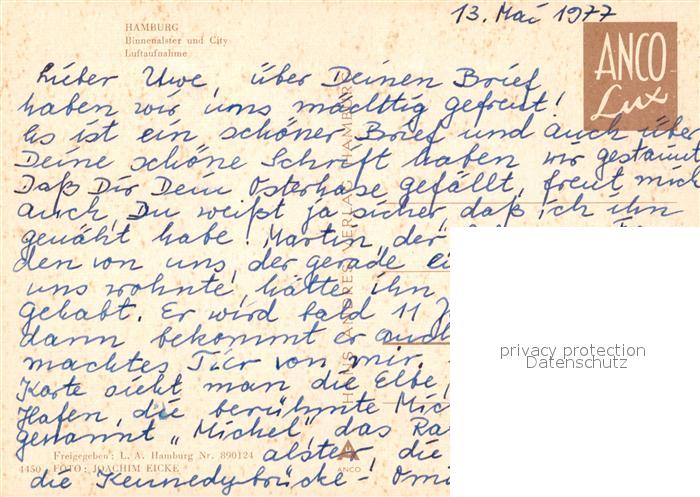 13. Mai 1977
HAMBURG
Binnenalster und City
Luftaufnahme
ANCO
Lux
Lieber Uwe, über Deinen Brief
haben wir uns mächtig gefreut!
Es ist ein schöner Brief und auch über
Deine schöne Schrift haben wir gestaunt
Daß Dir Dein Osterhase gefällt, freut mich
auch, Du weißt ja sicher, daß ich ihn
genäht habe! Martin, der
den von uns, der gerade
uns wohnte, hätte ihn
gehabt. Er wird bald 11 J
dann bekommt er auch
machtes Tier von mir.
Karte sieht man die Elbe,
Hafen, die berühmte Mic
genannt "Michel", das Ra
alster, die
die Kennedybrücke! Omi
Freigegeben: L. A. Hamburg Nr. 890124
4450 FOTO: JOACHIM EICKE
A
ANCO
HANS ANDRES VERLAG HAMBURG
privacy protection
Datenschutz